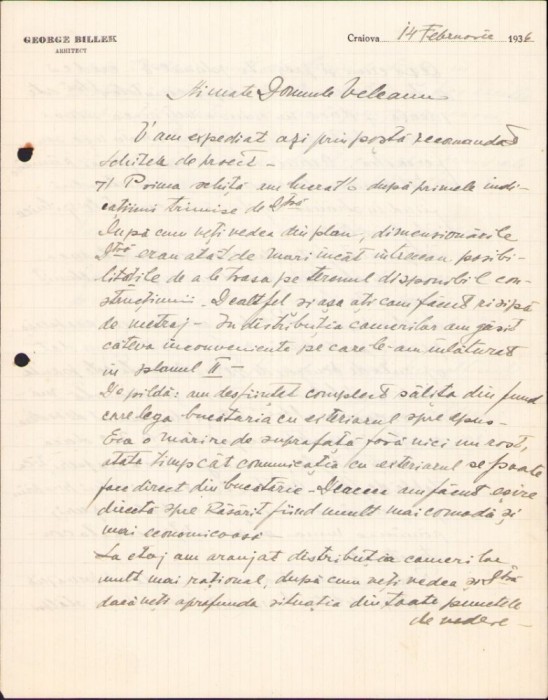 GEORGE BILLEK
ARHITECT
Craiova 14 Februarie 1936
Stimate Domnule Veleanu
V'am expediat azi prin postă recomandat
schitele de proect –
I) Prima schită am lucrat'o după primele indi-
catiuni trimise de Dtră
După cum veti vedea din plan, dimensionările
Dtră erau atat de mari incât intreceau posibi-
litătile de a le trasa pe terenul disponibil con-
structiunii. Dealtfel si asa ati cam făcut risipă
de metraj – In distributia camerilor am găsit
câteva inconveniente pe care le-am inlăturat
in planul II
De pildă: am desfiintat complect sălita din fund
care lega bucataria cu exteriorul spre apus –
Era o mărire de suprafată fără nici un rost,
atata timp cât comunicatia cu exteriorul se poate
face direct din bucatărie – Deaceea am făcut esire
directă spre Răsărit fiind mult mai comodă și
mai economicoasă
La etaj am aranjat distributia camerilor
mult mai rational, după cum veti vedea si Dtră
dacă veti aprofunda situatia din toate punctele
de vedere –